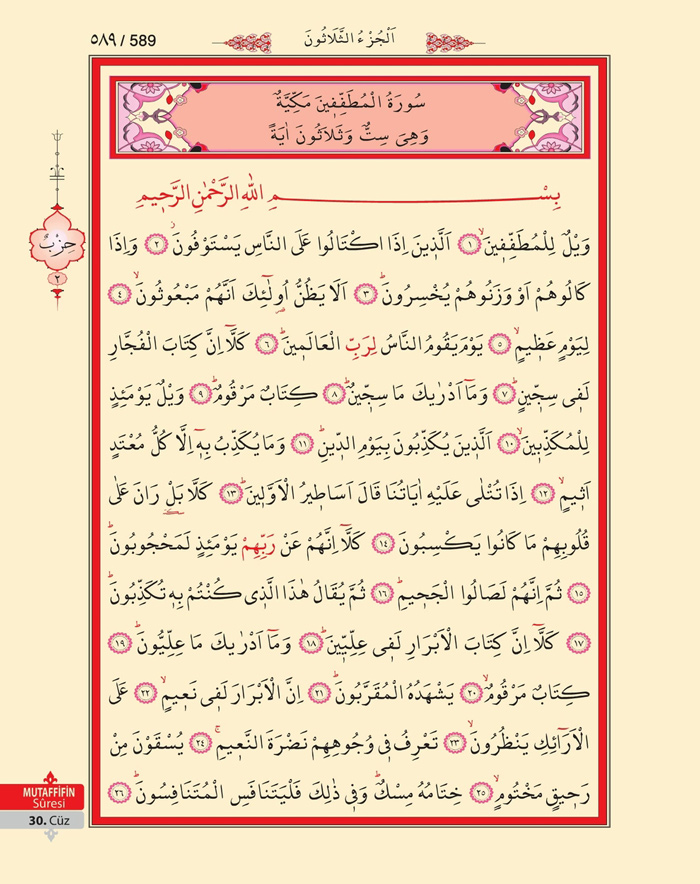 ٥٨٩ / 589
اَلْجُزْءُ الثَّلَاثُونَ
سُورَةُ الْمُطَفِّف۪ينَ مَكِّيَّةٌ
وَهِيَ سِتٌّ وَثَلَاثُونَ اٰيَةً
بِسْــــــــــــمِ اللّٰهِ الرَّحْمٰنِ الرَّح۪يمِ
وَيْلٌ لِلْمُطَفِّف۪ينَۙ ﴿١﴾ اَلَّذ۪ينَ اِذَا اكْتَالُوا عَلَى النَّاسِ يَسْتَوْفُونَۘ ﴿٢﴾ وَاِذَا
كَالُوهُمْ اَوْ وَزَنُوهُمْ يُخْسِرُونَۜ ﴿٣﴾ اَلَا يَظُنُّ اُو۬لٰٓئِكَ اَنَّهُمْ مَبْعُوثُونَۙ ﴿٤﴾
لِيَوْمٍ عَظ۪يمٍۙ ﴿٥﴾ يَوْمَ يَقُومُ النَّاسُ لِرَبِّ الْعَالَم۪ينَۜ ﴿٦﴾ كَلَّٓا اِنَّ كِتَابَ الْفُجَّارِ
لَف۪ي سِجّ۪ينٍۜ ﴿٧﴾ وَمَٓا اَدْرٰيكَ مَا سِجّ۪ينٌۜ ﴿٨﴾ كِتَابٌ مَرْقُومٌۜ ﴿٩﴾ وَيْلٌ يَوْمَئِذٍ
لِلْمُكَذِّب۪ينَۙ ﴿١٠﴾ اَلَّذ۪ينَ يُكَذِّبُونَ بِيَوْمِ الدّ۪ينِۜ ﴿١١﴾ وَمَا يُكَذِّبُ بِه۪ٓ اِلَّا كُلُّ مُعْتَدٍ
اَث۪يمٍۙ ﴿١٢﴾ اِذَا تُتْلٰى عَلَيْهِ اٰيَاتُنَا قَالَ اَسَاط۪يرُ الْاَوَّل۪ينَۜ ﴿١٣﴾ كَلَّا بَلْ رَانَ عَلٰى
قُلُوبِهِمْ مَا كَانُوا يَكْسِبُونَ ﴿١٤﴾ كَلَّٓا اِنَّهُمْ عَنْ رَبِّهِمْ يَوْمَئِذٍ لَمَحْجُوبُونَۜ
﴿١٥﴾ ثُمَّ اِنَّهُمْ لَصَالُوا الْجَح۪يمِۜ ﴿١٦﴾ ثُمَّ يُقَالُ هٰذَا الَّذ۪ي كُنْتُمْ بِه۪ تُكَذِّبُونَۜ
﴿١٧﴾ كَلَّٓا اِنَّ كِتَابَ الْاَبْرَارِ لَف۪ي عِلِّيّ۪ينَۜ ﴿١٨﴾ وَمَٓا اَدْرٰيكَ مَا عِلِّيُّونَۜ ﴿١٩﴾
كِتَابٌ مَرْقُومٌۙ ﴿٢٠﴾ يَشْهَدُهُ الْمُقَرَّبُونَۜ ﴿٢١﴾ اِنَّ الْاَبْرَارَ لَف۪ي نَع۪يمٍۙ ﴿٢٢﴾ عَلَى
الْاَرَٓائِكِ يَنْظُرُونَۙ ﴿٢٣﴾ تَعْرِفُ ف۪ي وُجُوهِهِمْ نَضْرَةَ النَّع۪يمِۚ ﴿٢٤﴾ يُسْقَوْنَ مِنْ
رَح۪يقٍ مَخْتُومٍۙ ﴿٢٥﴾ خِتَامُهُ مِسْكٌۜ وَف۪ي ذٰلِكَ فَلْيَتَنَافَسِ الْمُتَنَافِسُونَۜ ﴿٢٦﴾
حِزْبٌ
٢
MUTAFFİFÎN
Sûresi
30. Cüz